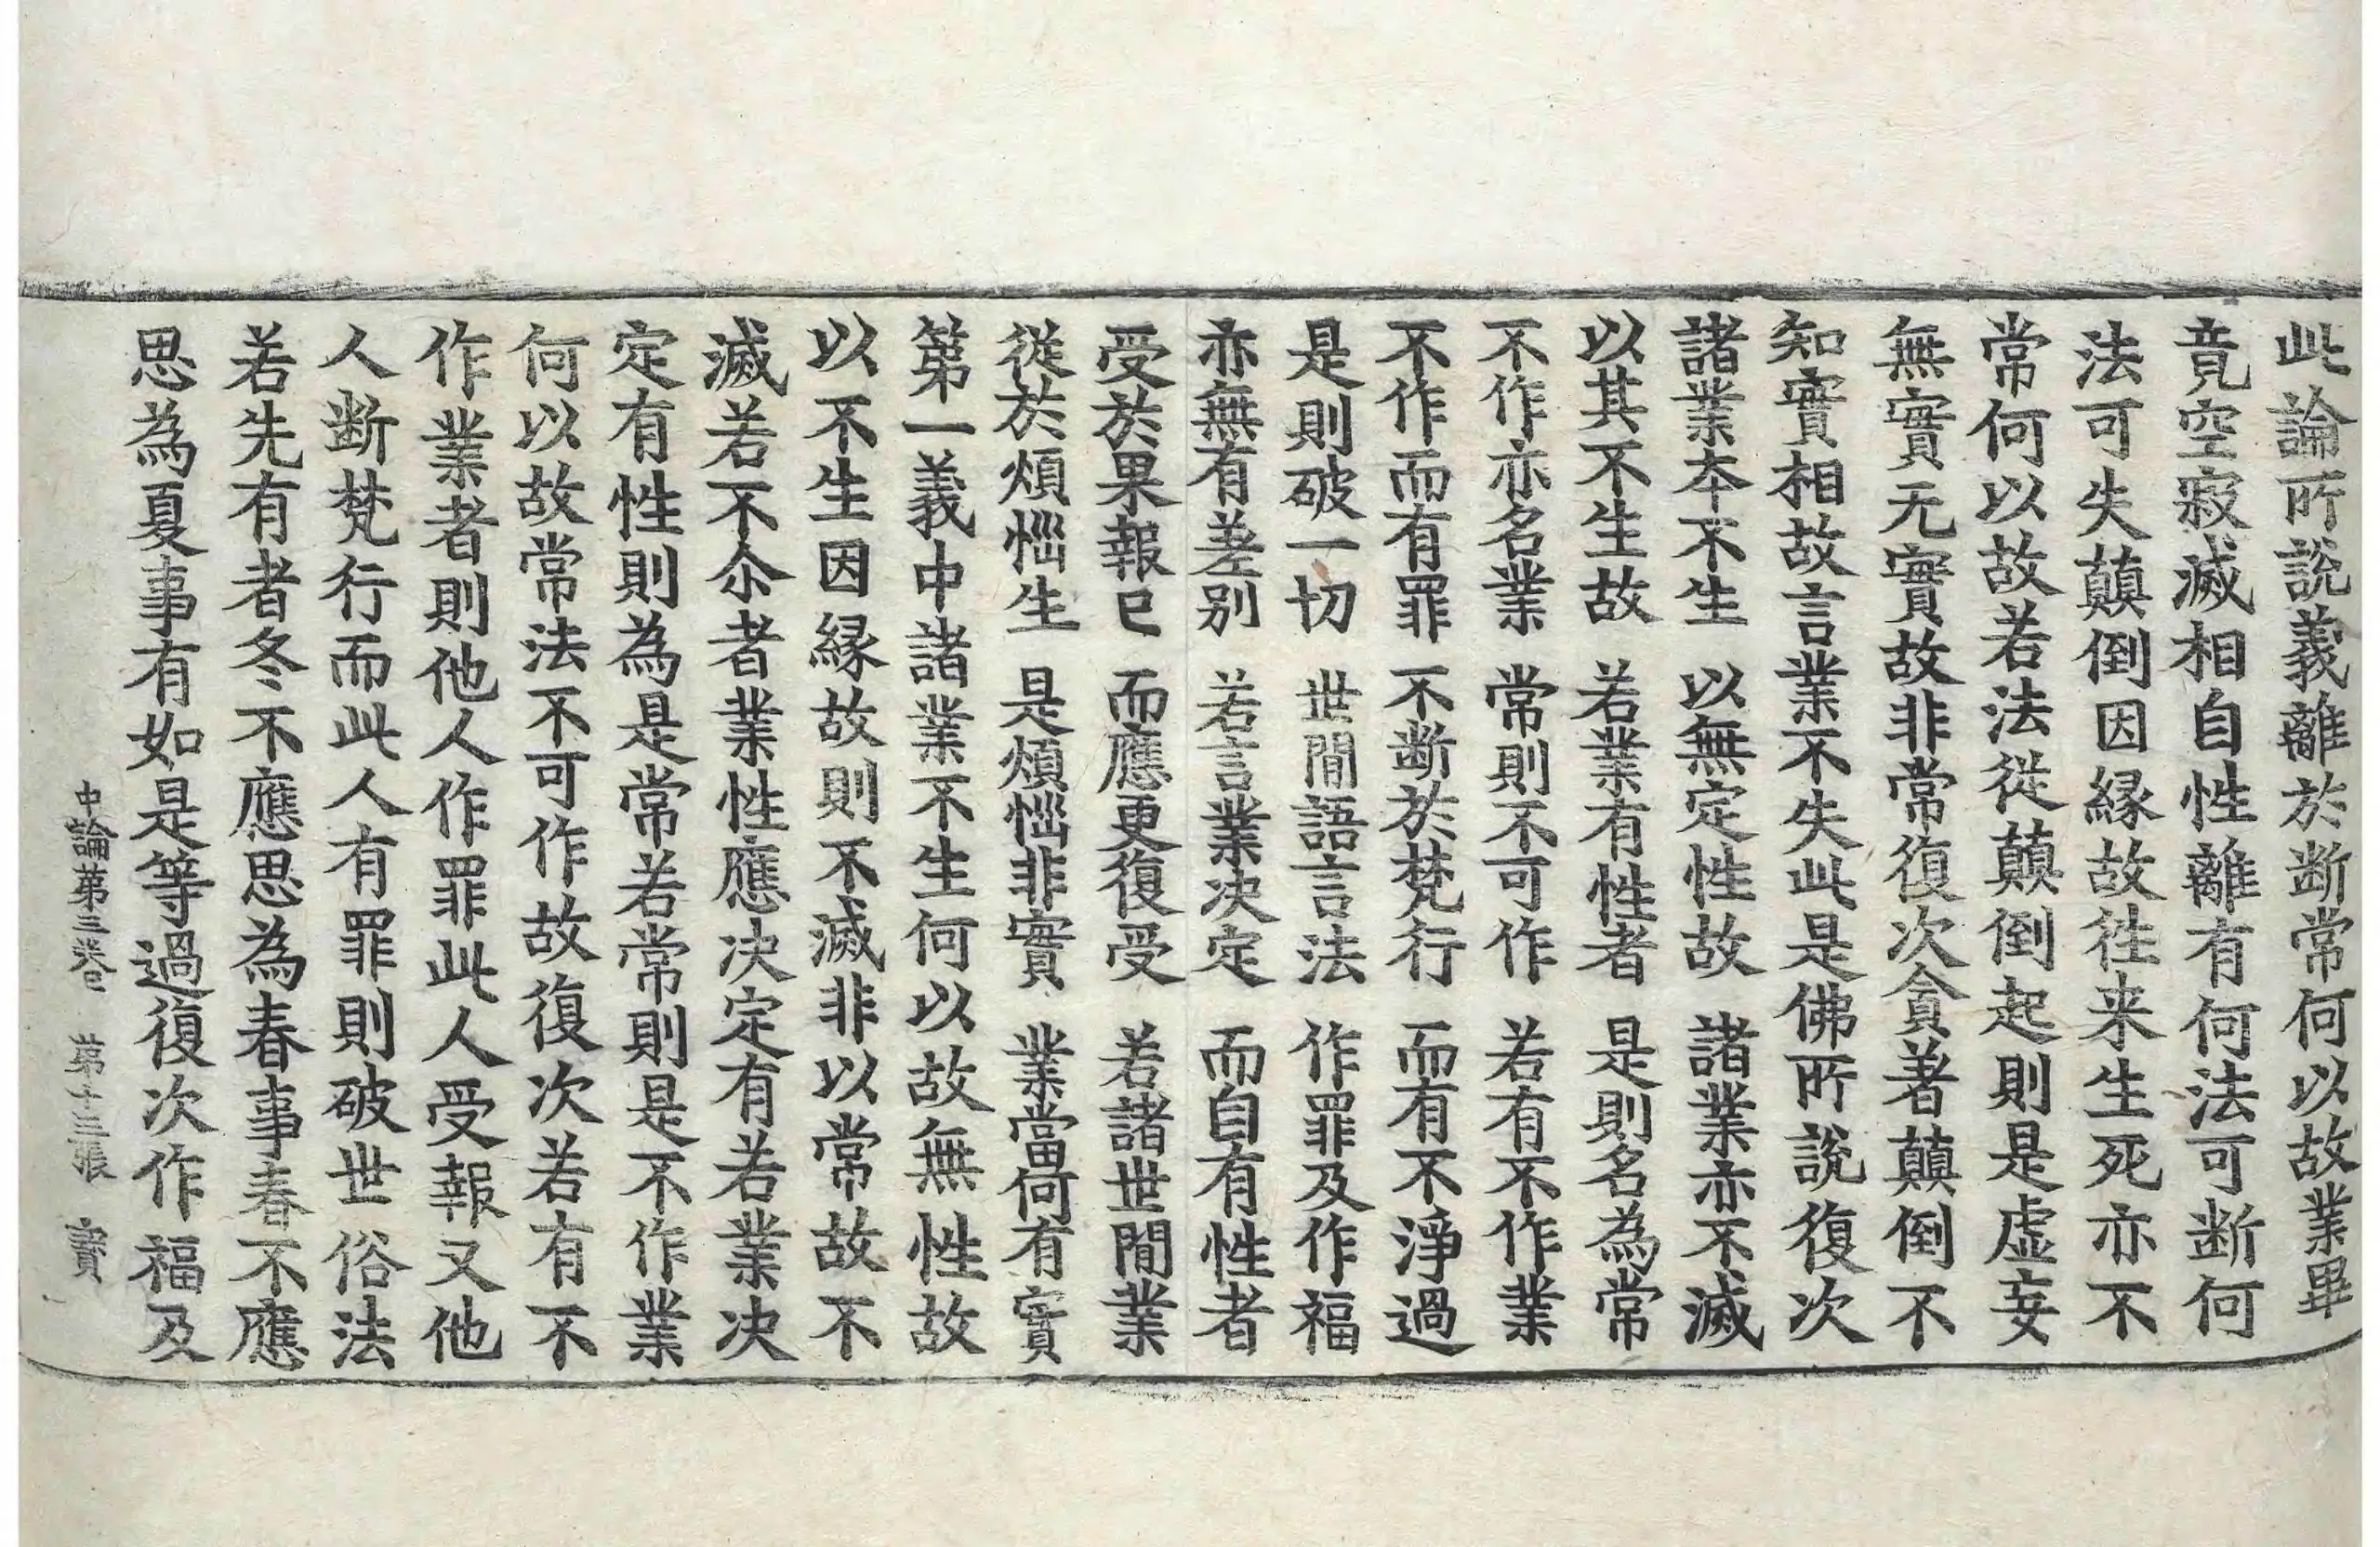 此論所說義離於断常何以故業畢
竟空寂滅相自性離有何法可断何
法可失顛倒因縁故徃来生死亦不
常何以故若法從顛倒起則是虛妄
無實无實故非常復次貪著顛倒不
知實相故言業不失此是佛所說復次
諸業夲不生　以無定性故　諸業亦不滅
以其不生故　若業有性者　是則名為常
不作亦名業　常則不可作　若有不作業
不作而有罪　不断於梵行　而有不淨過
是則破一切　世間語言法　作罪及作福
亦無有差别　若言業决定　而自有性者
受於果報已　而應更復受　若諸世間業
從於煩惱生　是煩惱非實　業當何有實
第一義中諸業不生何以故無性故
以不生因縁故則不滅非以常故不
滅若不尒者業性應决定有若業决
定有性則為是常若常則是不作業
何以故常法不可作故復次若有不
作業者則他人作罪此人受報又他
人断梵行而此人有罪則破世俗法
若先有者冬不應思為春事春不應
思為夏事有如是等過復次作福及
中論第三卷　第十三張　實